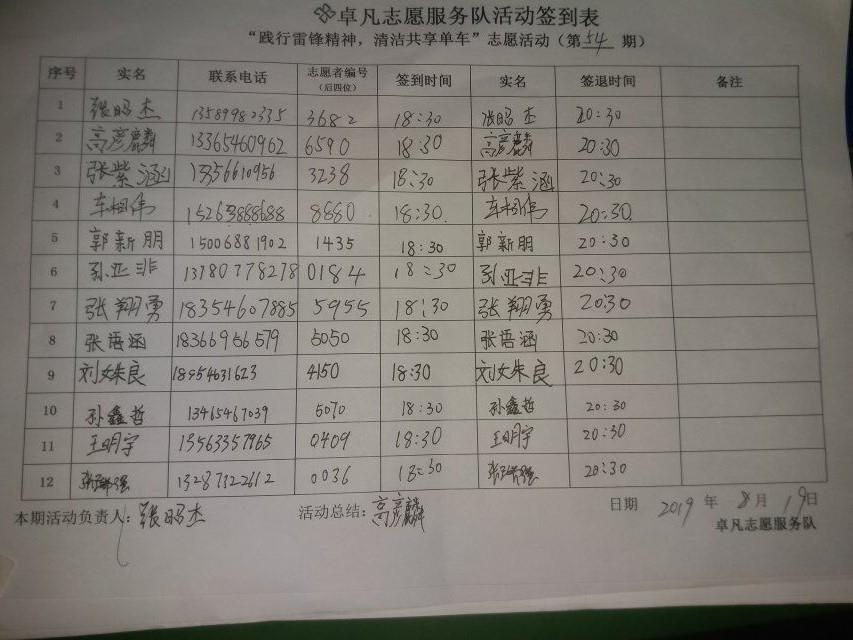 卓凡志愿服务队活动签到表
“践行雷锋精神，清洁共享单车”志愿活动（第54期）
序号 实名 联系电话 志愿者编号（后四位） 签到时间 实名 签退时间 备注
1 张昭杰 13589982335 3682 18:30 张昭杰 20:30
2 高彦麟 13365460962 6590 18:30 高彦麟 20:30
3 张紫涵 13356610956 3238 18:30 张紫涵 20:30
4 车相伟 8880 18:30 车相伟 20:30
5 郭新朋 15006881902 1435 18:30 郭新朋 20:30
6 孙亚非 13780778278 0184 18:30 孙亚非 20:30
7 张翔勇 18354607885 5955 18:30 张翔勇 20:30
8 张语涵 18366956579 5050 18:30 张语涵 20:30
9 刘姝良 18954631623 4150 18:30 刘姝良 20:30
10 孙鑫哲 13465467039 5070 18:30 孙鑫哲 20:30
11 王明宇 13563357965 0409 18:30 王明宇 20:30
12 13287322612 0036 18:30 20:30
本期活动负责人：张昭杰 活动总结：高彦麟 日期 2019年8月19日
卓凡志愿服务队